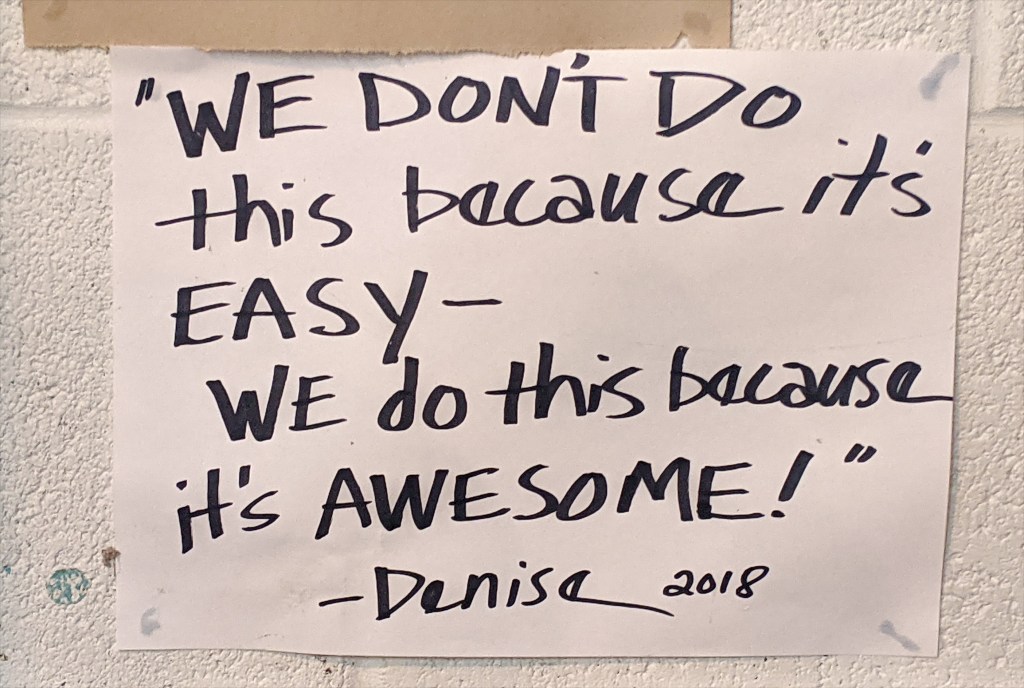 "WE DON'T DO
this because it's
EASY-
WE do this because
it's AWESOME!"
-Denise 2018